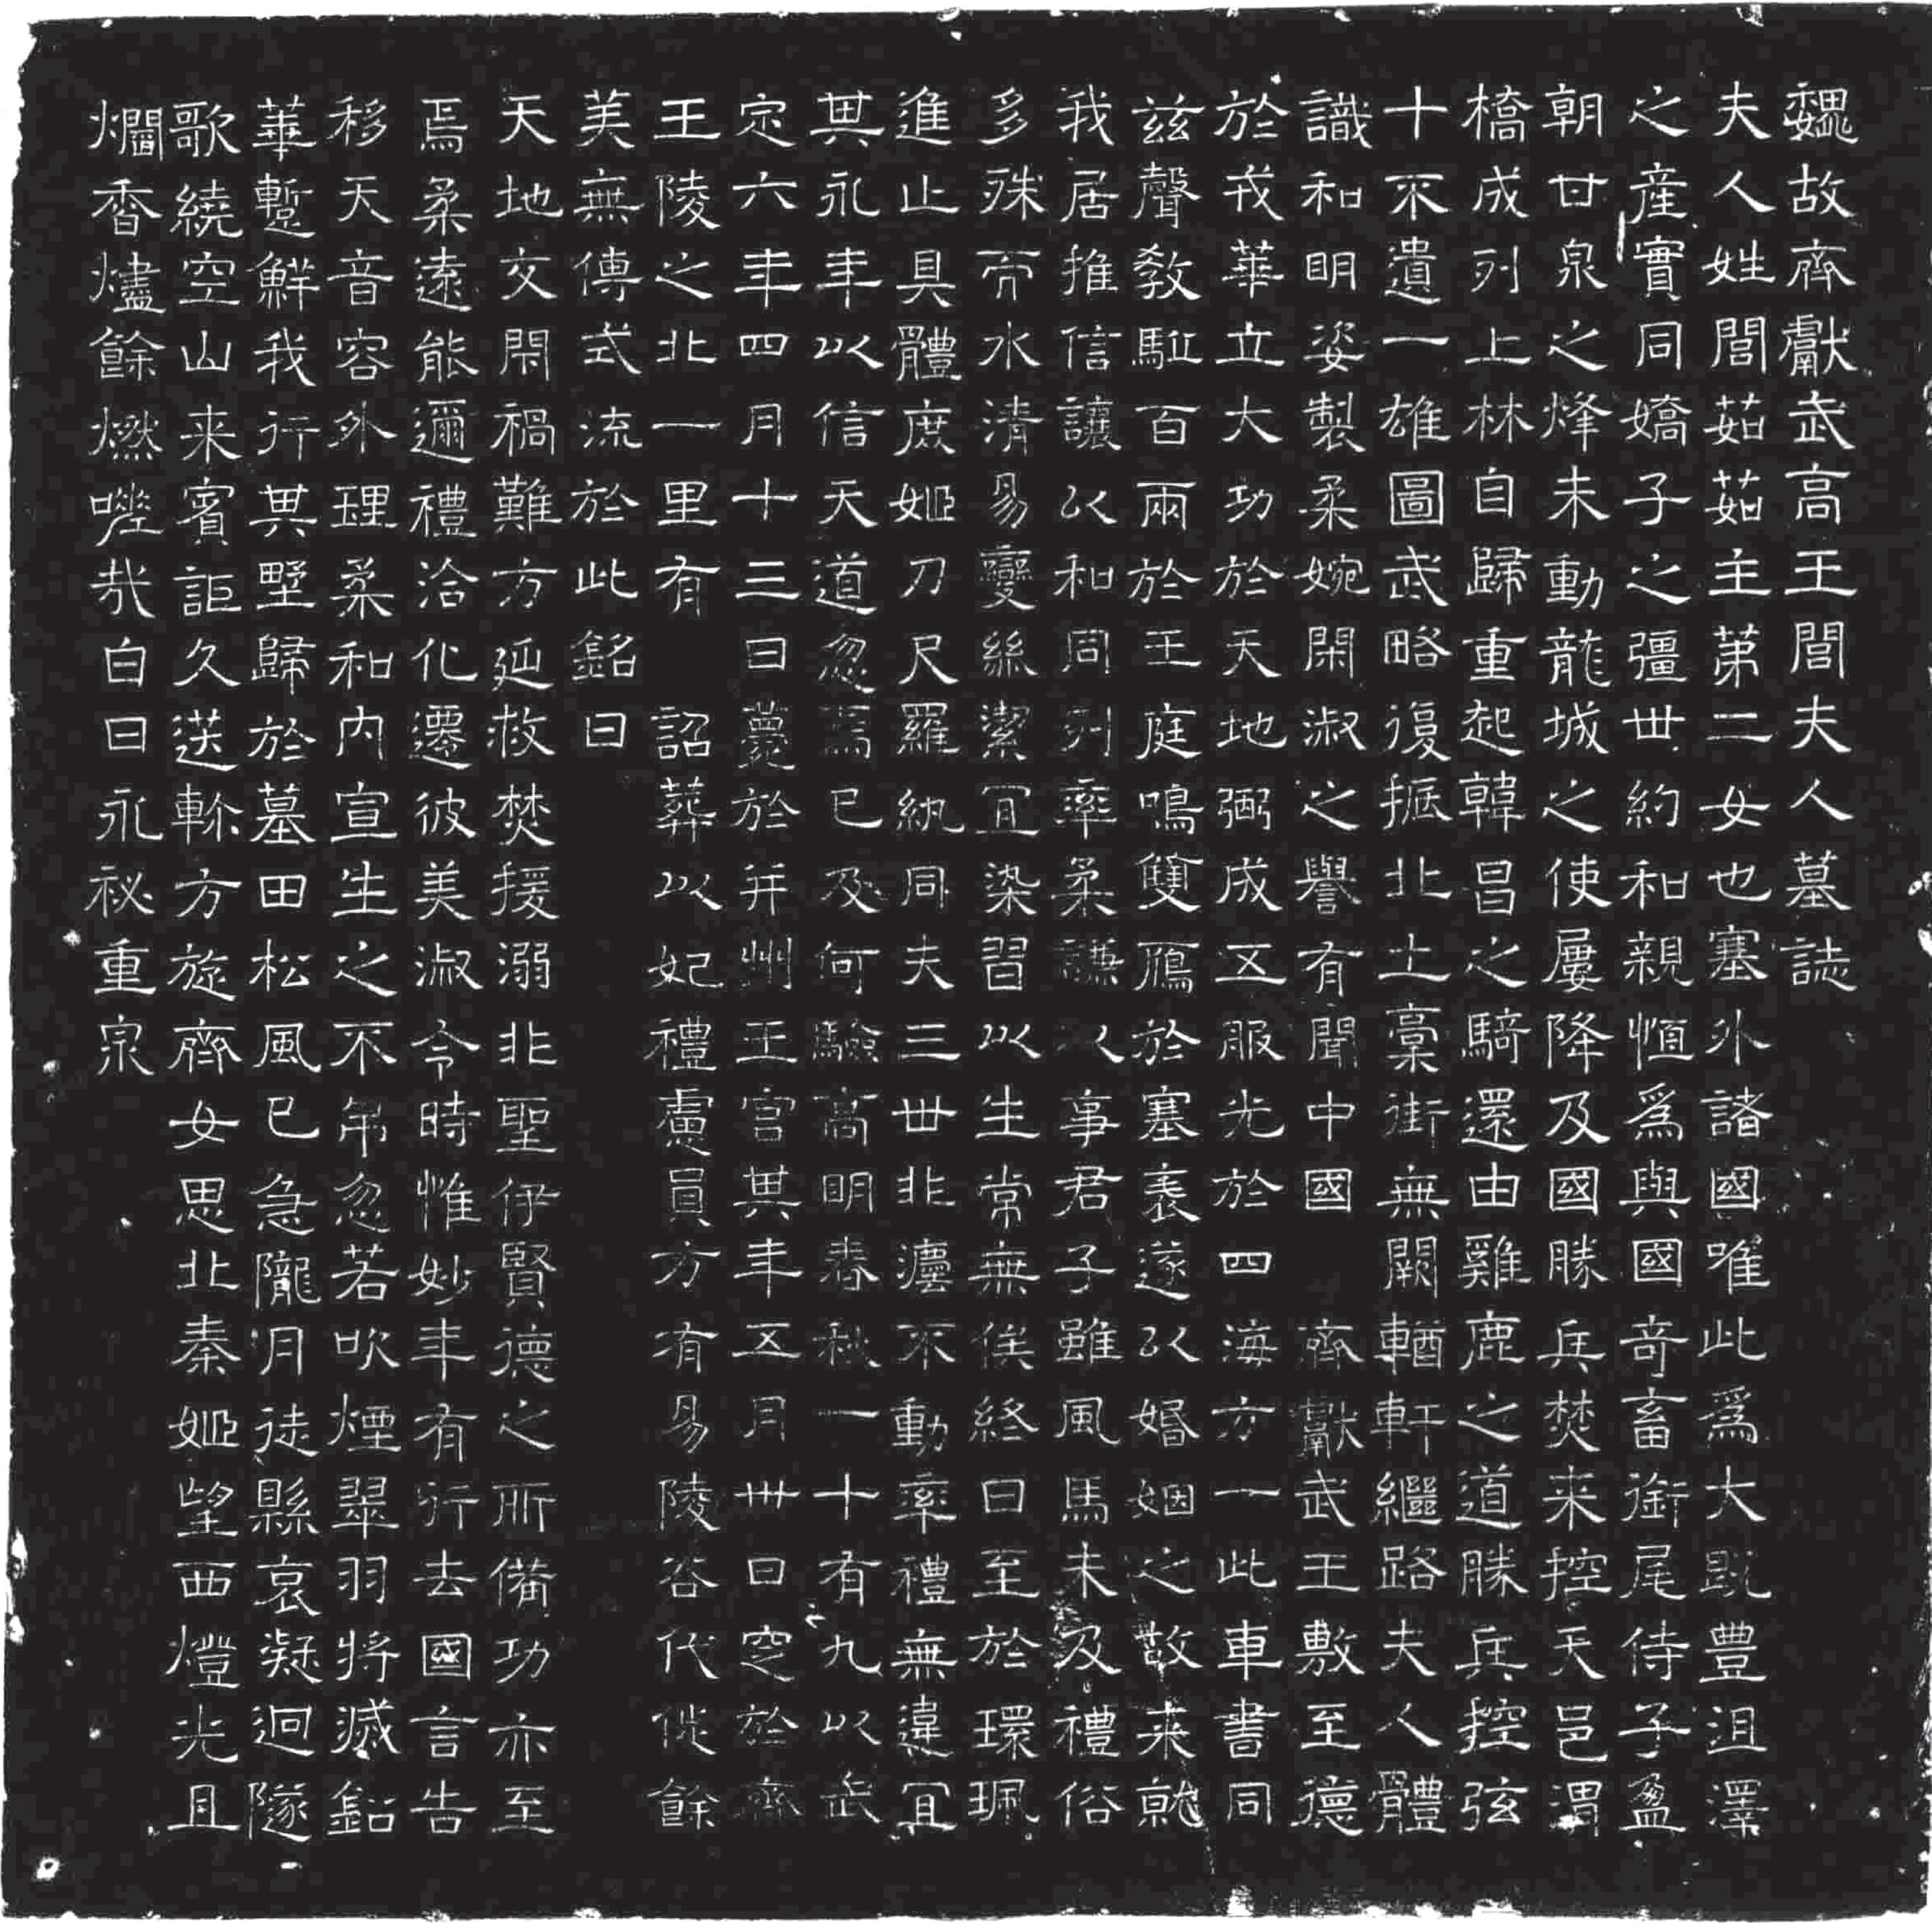 魏故齊獻武高王閭夫人墓誌
夫人姓閭茹茹主第二女也塞外諸國唯此為大既豐沮澤
之產實同嬌子之彊世約和親恒為與國奇畜銜尾侍子盈
朝甘泉之烽未動龍城之使屢降及國勝兵焚来控天邑渭
橋成列上林自歸重起韓昌之騎還由雞鹿之道勝兵控弦
十不遺一雄圖武略復振北土藁街無闕輶軒繼路夫人體
識和明姿製柔婉閑淑之譽有聞中國 齊獻武王敷至德
於戎華立大功於天地弼成五服光於四海方一此車書同
茲聲教駈百兩於王庭鳴雙鴈於塞表遂以婚姻之故来就
我居推信讓以和同列率柔謙以事君子雖風馬未及禮俗
多殊而水清易變絲潔宜染習以生常無俟終日至於環珮
進止具體庶姬刀尺羅紈同夫三世非灋不動率禮無違宜
其永年以信天道忽焉已及何驗高明春秋一十有九以武
定六年四月十三日薨於并州王宮其年五月卅日窆於齊
王陵之北一里有 詔葬以妃禮慮員方有易陵谷代徙餘
美無傳式流於此銘曰
天地交閇禍難方延救焚援溺非聖伊賢德之所備功亦至
焉柔遠能邇禮洽化遷彼美淑令時惟妙年有行去國言告
移天音容外理柔和內宣生之不弔忽若吹煙翠羽將滅鈆
華蹔鮮我行其野歸於墓田松風已急隴月徒懸哀凝迥隧
歌繞空山来賓詎久送轊方旋齊女思北秦姬望西燈光且
爛香燼餘燃嗟哉白日永祕重泉